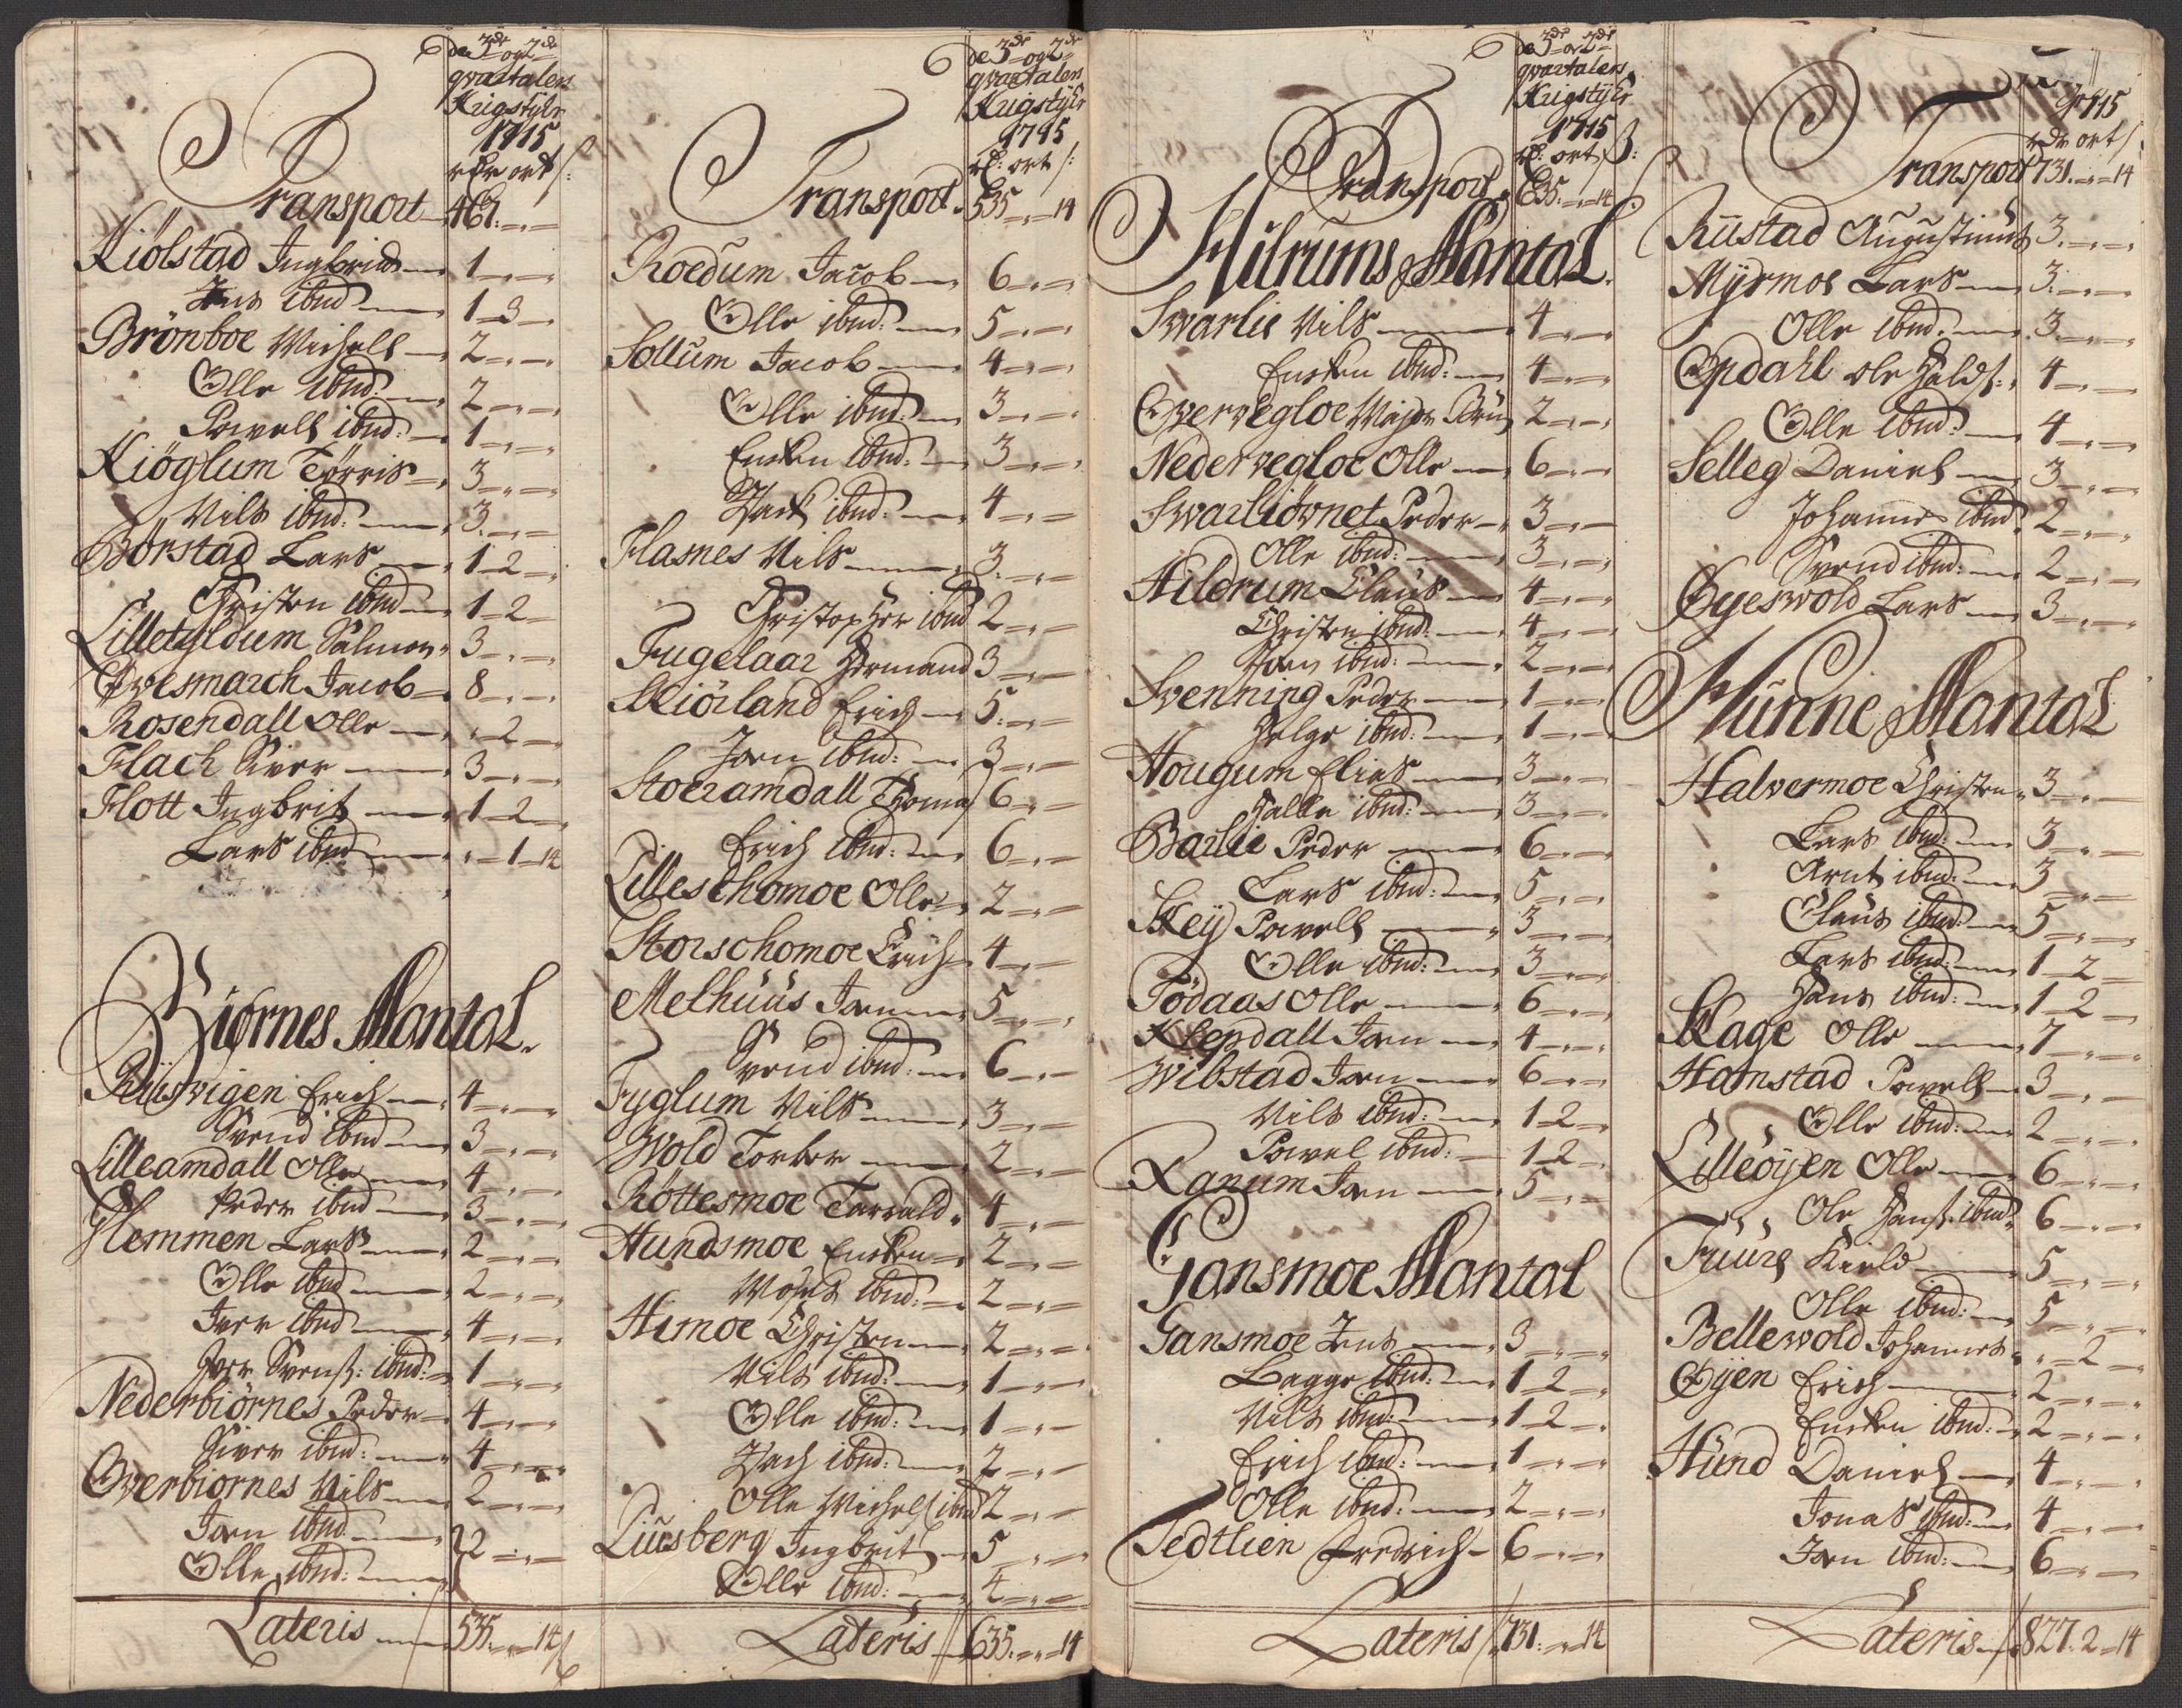 de 3de og 2de
qvartalers
Krigstÿr
1715
rdr ort s:
Transport 461. „ „
Kiölstad Ingbrict 1 „ „
Jens ibnd 1 3 „
Brönboe Michell 2 „ „
Olle ibnd: 2 „ „
Powell ibnd: 1 „ „
Kiöglum Törris 3 „ „
Nils ibnd: 3 „ „
Börstad Lars 1 2 „
Christen ibnd 1 2 „
Lilletyldum Salmon 3 „ „
Qvesmarch Jacob 8 „ „
Rosendall Olle „ 2 „
Flach Siver 3 „ „
Flott Ingbrit 1 2 „
Lars ibnd „ 1 14
Biörnes Mantal.
Reisvigen Erich 4 „ „
Svend ibnd 3 „ „
Lilleamdall Olle 4 „ „
Peder ibnd 3 „ „
Glemmen Lars 2 „ „
Olle ibnd 2 „ „
Iver ibnd 4 „ „
Iver Svens: ibnd: 1 „ „
Nederbiörnes Peder 4 „ „
Siver ibnd: 4 „ „
Overbiornes Nils 2 „ „
Jorn ibnd 2 „ „
Olle ibnd:
Lateris 535. „ 14
de 3de og 2de
qvartalers
Krigstÿr
1715
rd: ort s:
Transport 535 „ 14
Roedum Jacob 6 „ „
Olle ibnd: 5 „ „
Sollum Jacob 4 „ „
Olle ibnd: 3 „ „
Ensken ibnd: 3 „ „
Isack ibnd: 4 „ „
Flasnes Nils 3. „ „
Christopher ibnd 2 „ „
Fugelaar Hermand 3 „ „
Skiörland Erich 5. „ „
Jorn ibnd: 3 „ „
Stoeramdall Thomas 6 „ „
Erich ibnd: 6 „ „
Lilleschomoe Olle 2 „ „
Storschomoe Erich 4 „ „
Melhuus Jorn 5 „ „
Svend ibnd: 6 „ „
Fyglum Nils 3 „ „
Wold Torber 2 „ „
Röttesmoe Tarrald 4 „ „
Hundsmoe Ensken 2 „ „
Mosis ibnd: 2 „ „
Himoe Christen 2 „ „
Nils ibnd: 1 „ „
Olle ibnd: 1 „ „
Isach ibnd: 2 „ „
Olle Michels: ibnd 2 „ „
Liusberg Ingbrit 5 „ „
Olle ibnd: 4 „ „
Lateris 635. „ 14
de 3de og 2de
qvartalers
Krigstÿr
1715
rd: ort s:
Transport 635. „ 14
Hilrums Mantal.
Swarlie Nils 4 „ „
Ensken ibnd: 4 „ „
Overvegloe Major Brun 2 „ „
Nedervegloe Olle 6 „ „
Swarliövnet Peder 3 „ „
Olle ibnd: 3 „ „
Hildrum Claus 4 „ „
Christen ibnd: 4 „ „
Jorn ibnd: 2 „ „
Svenning Peder 1 „ „
Helge ibnd: 1 „ „
Hougum Elias 3 „ „
Halle ibnd: 3 „ „
Barlie Peder 6 „ „
Lars ibnd: 5 „ „
Skey Powell 3 „ „
Olle ibnd: 3 „ „
Födaas Olle 6 „ „
Klepdall Jorn 4 „ „
Wibstad Jorn 6 „ „
Nils ibnd: 1 2 „
Powel ibnd: 1 2 „
Ranum Jorn 5 „ „
Gansmoe Mantal
Gansmoe Jens 3 „ „
Bagge ibnd: 1 2 „
Nils ibnd: 1 2 „
Erich ibnd: 1 „ „
Olle ibnd: 2 „ „
Tedtlien Fredrich 6 „ „
Lateris 731: „ 14
1715
rdr ort s:
Transport 731. „ 14
Riistad Augustinus 3. „ „
Myrmoe Lars 3. „ „
Olle ibnd: 3 „ „
Opdahl ole Halds: 4 „ „
Olle ibnd: 4 „ „
Selleg Daniel 3 „ „
Johannes ibnd: 2 „ „
Svend ibnd: 2 „ „
Øyeswold Lars 3 „ „
Hunne Mantal
Halvermoe Christen 3 „ „
Lars ibnd: 3 „ „
Arnt ibnd: 3 „ „
Claus ibnd: 5 „ „
Lars ibnd: 1 2 „
Hans ibnd: 1 2 „
Skage Olle 7 „ „
Homstad Powell 3 „ „
Olle ibnd: 2 „ „
Lilleöyen Olle 6 „ „
Ole Hans: ibnd: 6 „ „
Fuure Kield 5 „ „
Olle ibnd: 5 „ „
Bellewold Johannes „ 2 „
Öyen Erich 2 „ „
Ensken ibnd: 2 „ „
Hund Daniel 4 „ „
Jonas ibnd: 4 „ „
Jorn ibnd: 6 „ „
Lateris 827. 2 14